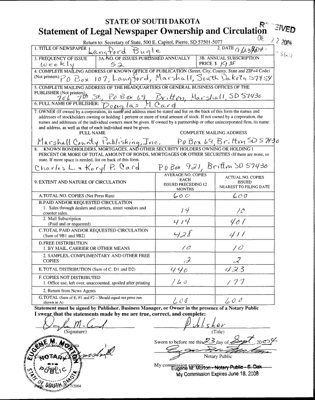 STATE OF SOUTH DAKOTA
Statement of Legal Newspaper Ownership and Circulation
Return to: Secretary of State, 500 E. Capitol, Pierre, SD 57501-5077
1. TITLE OF NEWSPAPER Langford Bugle 2. DATE
3. FREQUENCY OF ISSUE weekly 3A. NO. OF ISSUES PUBLISHED ANNUALLY 52 3B. ANNUAL SUBSCRIPTION PRICE $
4. COMPLETE MAILING ADDRESS OF KNOWN OFFICE OF PUBLICATION (Street, City, County, State and ZIP+4 Code) (Not printers)
PO Box 107, Langford, Marshall, South Dakota 57454
5. COMPLETE MAILING ADDRESS OF THE HEADQUARTERS OR GENERAL BUSINESS OFFICES OF THE PUBLISHER (Not printers)
PO Box 69 Britton, Marshall, SD 57430
6. FULL NAME OF PUBLISHER: Douglas M. Card
7. OWNER (If owned by a corporation, its name and address must be stated and also immediately
addresses of stockholders owning or holding 1 percent or more of total amount of stock. If not owned by a corporation, the
names and addresses of the individual owners must be given. If owned by a partnership or other unincorporated firm, its name
and address, as well as that of each individual must be given.
FULL NAME COMPLETE MAILING ADDRESS
Marshall County Publishing, Inc. PO Box 69, Britton SD 57430
8. KNOWN BONDHOLDERS, MORTGAGES, AND OTHER SECURITY HOLDERS OWNING OR HOLDING 1
PERCENT OR MORE OF TOTAL AMOUNT OF BONDS, MORTGAGES OR OTHER SECURITIES (If there are none, so
state. If more space is needed, list on back of this form.
Charles L. & Karyl P. Card PO Box 921, Britton SD 57430
9. EXTENT AND NATURE OF CIRCULATION
AVERAGE NO. COPIES EACH ISSUED PRECEDING 12 MONTHS
ACTUAL NO. COPIES ISSUED NEAREST TO FILING DATE
A.TOTAL NO. COPIES (Net Press Run) 600 600
B.PAID AND/OR REQUESTED CIRCULATION
1. Sales through dealers and carriers, street vendors and counter sales. 14 10
2. Mail Subscription (Paid and/or requested) 414 401
C.TOTAL PAID AND/OR REQUESTED CIRCULATION (Sum of 9B1 and 9B2) 428 411
D.FREE DISTRIBUTION
1. BY MAIL, CARRIER OR OTHER MEANS 10 10
2. SAMPLES, COMPLIMENTARY AND OTHER FREE COPIES 2 2
E.TOTAL DISTRIBUTION (Sum of C, D1 and D2) 440 423
F.COPIES NOT DISTRIBUTED
1. Office use, left over, unaccounted, spoiled after printing 160 177
2. Return from News Agents
G.TOTAL (Sum of E, F1 and F2 - Should equal net press run shown in A) 600 600
Statement must be signed by Publisher, Business Manager, or Owner in the presence of a Notary Public
I swear that the statements made by me are true, correct, and complete:
Publisher
(Signature) (Title)
Sworn to before me this 23 day of Sept, 2004
Notary Public
Eugene M. Morton - Notary Public - S. Dak
My Commission Expires June 18, 2008
EUGENE M. MORTON
NOTARY
PUBLIC
SOUTH DAKOTA